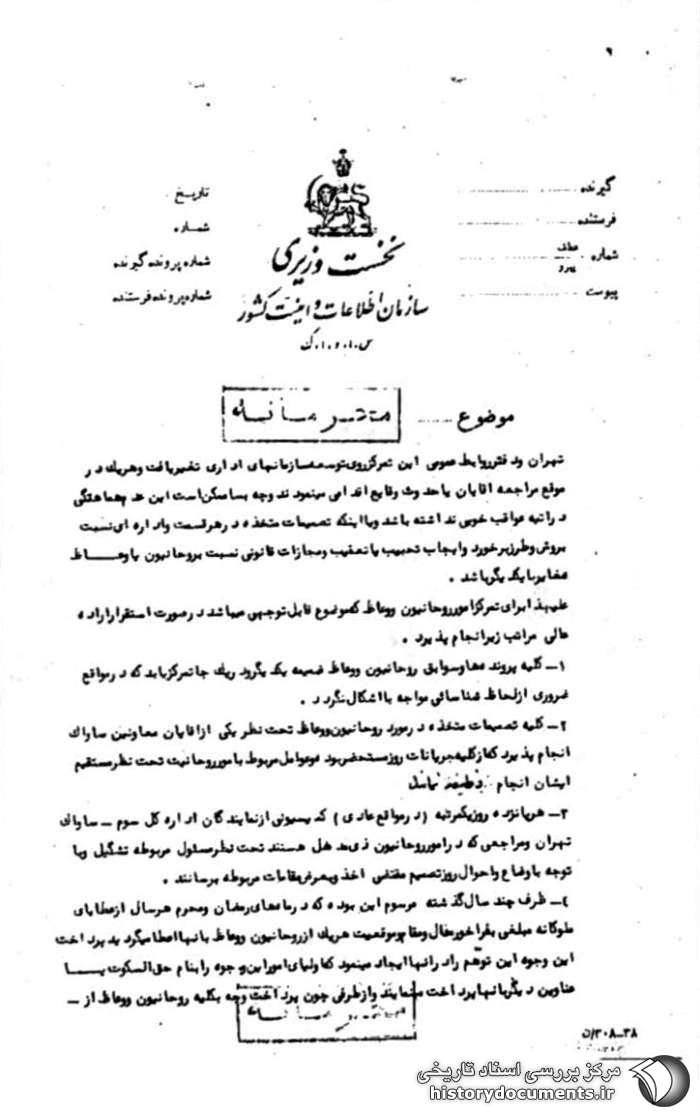 ۹
گیرنده
فرستنده
شماره عطف پیرو
پیوست
نخست وزیری
سازمان اطلاعات و امنیت کشور
س.ا.و.ا.ک
تاریخ
شماره
شماره پرونده گیرنده
شماره پرونده فرستنده
موضوع
تهران و دفتر روابط عمومی این تمرکز روی توسعه سازمانهای اداری تغییر یافت و هریک در
موقع مراجعه اقایان یا حدوث وقایع اقدامی مینمودند و چه بسا ممکن است این عدم هماهنگی
در اتیه عواقب خوبی نداشته باشد و یا اینکه تصمیمات متخذه در هر قسمت و اداره ای نسبت
بروش و طرز برخورد و ایجاب تحبیب یا تعقیب و مجازات قانونی نسبت بروحانیون یا وعاظ
مغایر با یکدیگر باشد .
علیهذا برای تمرکز امور روحانیون و وعاظ که موضوع قابل توجهی میباشد در صورت استقرار اراده
عالی مراتب زیر انجام پذیرد .
۱ـ کلیه پرونده ها و سوابق روحانیون و وعاظ ضمیمه یکدیگر و در یک جا تمرکز یابد که در مواقع
ضروری از لحاظ شناسائی مواجه با اشکال نگردد .
۲ـ کلیه تصمیمات متخذه در مورد روحانیون و وعاظ تحت نظر یکی از اقایان معاونین ساواک
انجام پذیرد که از کلیه جریانات روز مستحضر بود و عوامل مربوط بامور روحانیت تحت نظر مستقیم
ایشان انجام وظیفه نمایند
۳ـ هر پانزده روز یکمرتبه (در مواقع عادی) کمیسیونی از نمایندگان اداره کل سوم ـ ساواک
تهران و مراجعی که در امور روحانیون ذی مدخل هستند تحت نظر مسئول مربوطه تشکیل و با
توجه باوضاع و احوال روز تصمیم مقتضی اخذ و بعرض مقامات مربوطه برسانند .
۴ـ ظرف چند سال گذشته مرسوم این بوده که در ماه های رمضان و محرم هر سال از عطایای
ملوکانه مبلغی بفراخور حال و مقام و موقعیت هریک از روحانیون و وعاظ بانها اعطا میگردید پرداخت
این وجوه این توهم را در انها ایجاد مینمود که اولیای امور این وجوه را بنام حق السکوت یا
عناوین دیگر بانها پرداخت مینمایند و از طرفی چون پرداخت وجه بکلیه روحانیون و وعاظ از ـ
۳۰۸ـ۳۸/ن
مرکز بررسی اسناد تاریخی
historydocuments.ir